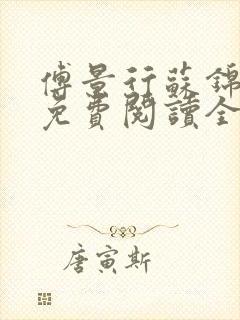 傅景行蘇錦
免費閱讀全
唐寅斯